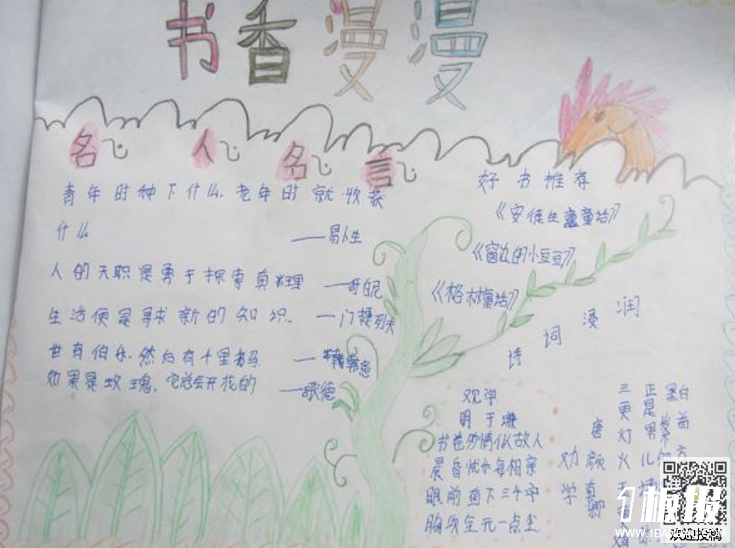 书香漫漫
名人名言
青年时种下什么,老年时就收获
什么
——易卜生
人的天职是勇于探索真理 ——哥白尼
生活便是寻求新的知识. ——门捷列夫
世有伯乐,然后有千里 ——韩愈
如果是玫瑰,它总会开花的 ——歌德
好书推荐
《安徒生童话》
《窗边的小豆豆》
《格林童话》
诗词漫润
观学
明 于谦
书卷多情似故人
晨昏忧乐每相亲
眼前直下三千字
胸次全无一点尘
劝学
唐 颜真卿
三更灯火五
正是男儿
黑白
板报